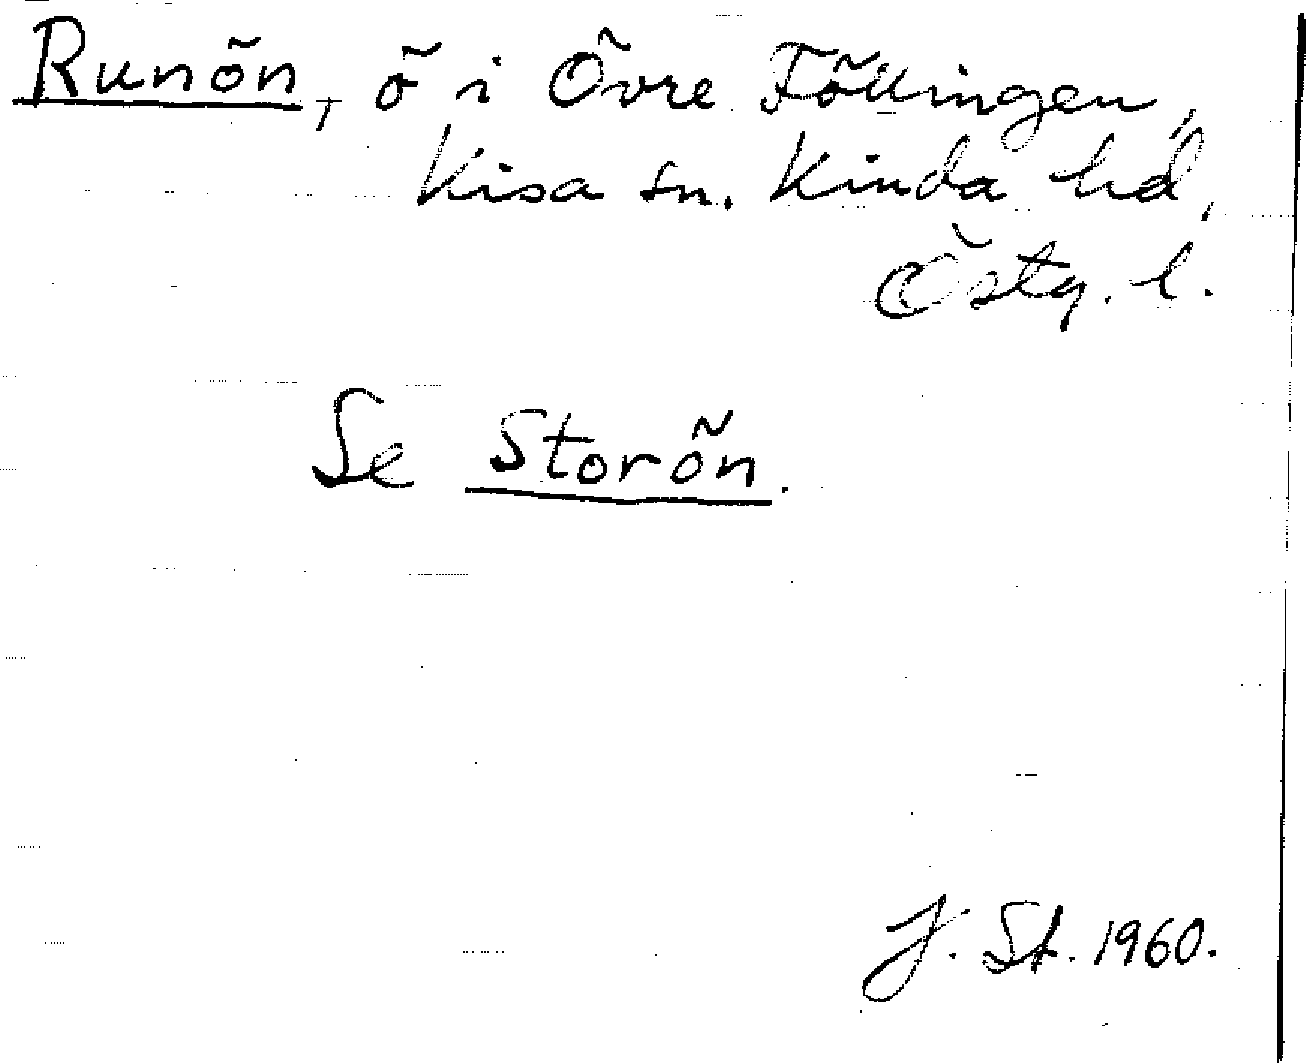 Runön, ö i Övre Föllingen,
Kisa sn. Kinda hd,
Östg. l.
Se Storön.
J. St. 1960.